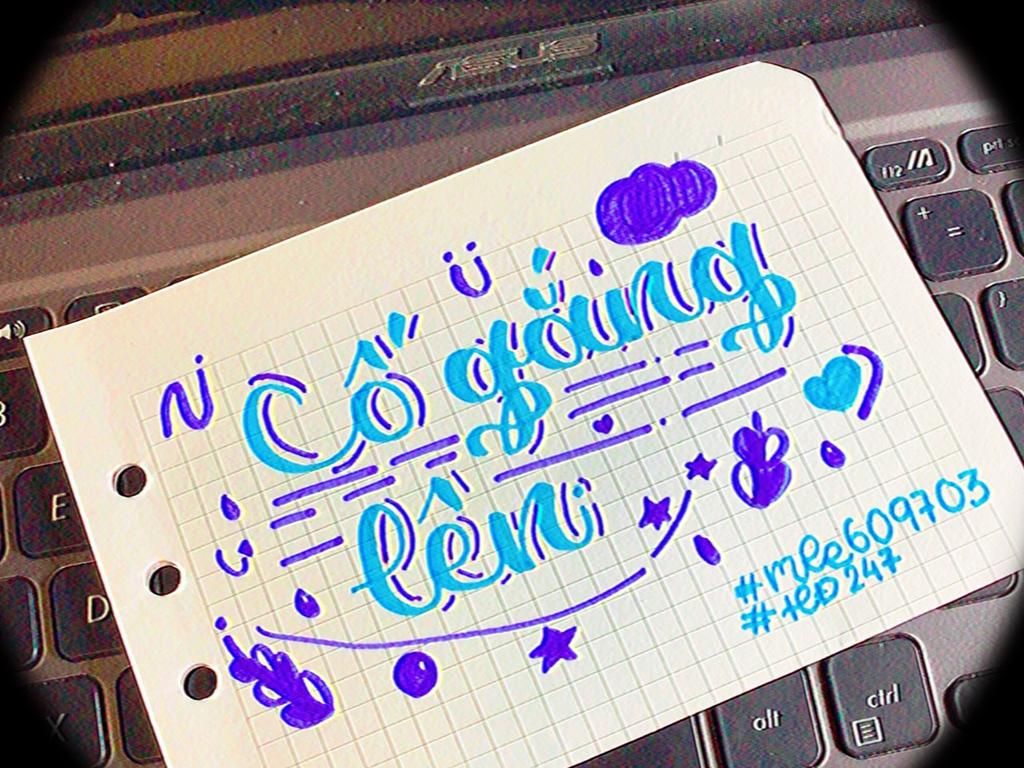 ASUS
f12
prt sc
+
=
}
Cố gắng
lên
E
D
X
#mle609703
#teo247
alt
ctrl